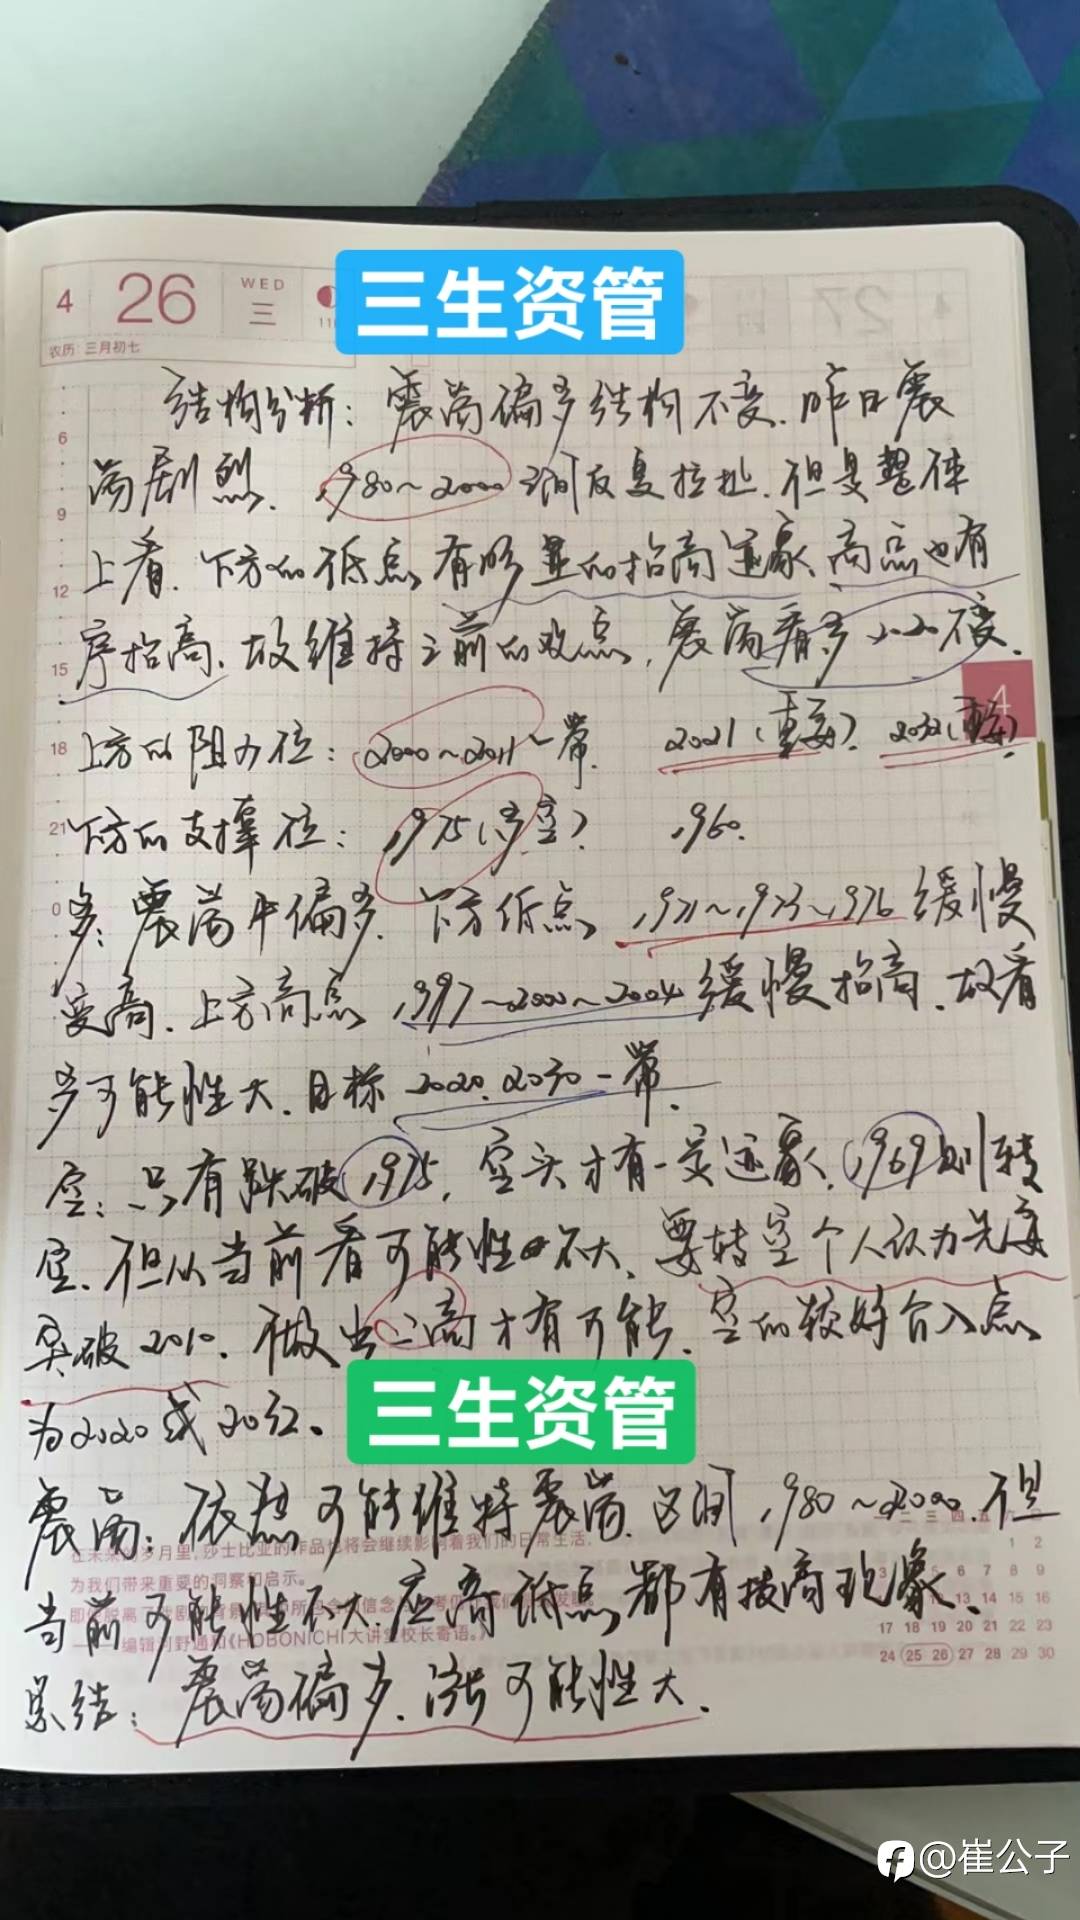 4 26 WED 三
农历：三月初七
三生资管
结构分析：震荡偏多结构不变．昨日震
荡剧烈．1980～2000之间反复拉扯．但是整体
上看．下方的低点有明显的抬高迹象、高点也有
序抬高．故维持之前的观点，震荡看多2020不变．
上方的阻力位：2000～2011一带． 2021（重要）． 2032（重要）
下方的支撑位：1975（多空） 1960．
多：震荡中偏多．下方低点 1971～1973～1976 缓慢
变高．上方高点 1997～2000～2004 缓慢抬高．故看
多可能性大．目标 2020．2030一带．
空：只有跌破1975，空头才有一定迹象，1969则转
空．但从当前看可能性不大、要转空个人认为先要
突破2010．做出二高才有可能．空的较好介入点
为2020或
三生资管
震荡：依然可能维持震荡．区间 1980～2000．但
当前可能性不大．应高低点都有拔高现象．
总结：震荡偏多．涨可能性大．
6
9
12
15
18
21
0
4
在未来的岁月里，莎士比亚的作品也将会继续影响着我们的日常生活，
为我们带来重要的洞察和启示。
编辑河野通和《HOBONICHI大讲堂校长寄语。》
17 18 19 20 21 22 23
24 25 26 27 28 29 30
@崔公子